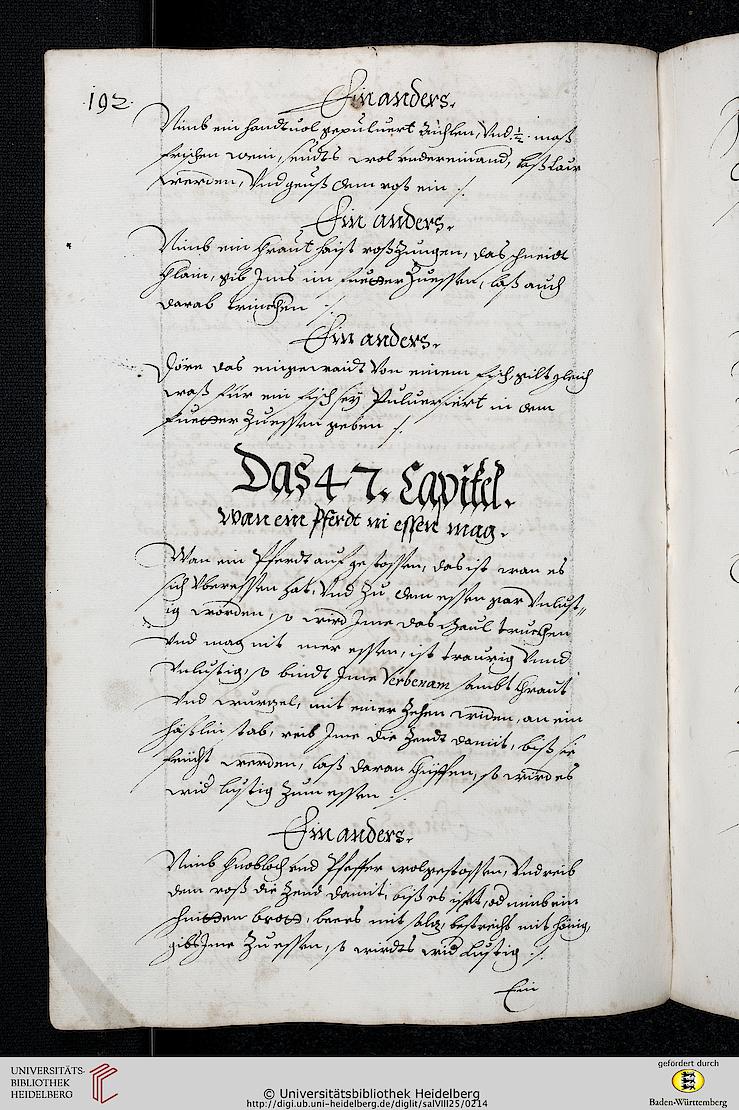 192.
Ein anders.
Nimb ein handtuol gepuluert, Vnd ½ maß
frischen wein, seudts wol vndereinand, laß laur
werden, Vnd geuß dem roß ein ./.
Ein anders.
Nimb ein Kraut haist roßZungen, das schneidt
Klain, gib Ims im fuetter Zuessen, laß auch
darab trinckhen ./.
Ein anders.
Dörr das eingewaidt Von einem fisch, gilt gleich
waß für ein fisch sey Puluerisiert in dem
fuetter Zuessen geben ./.
Das 47. Capitel.
Wan ein Pferdt nit essen mag.
Wan ein Pferdt auf gestossen, das ist wan es
sich Vberessen hat, Vnd Zu dem essen gar Vnlust„
ig worden, so wird Ime das Maul truckhen
Vnd mag nit mer essen, ist traurig Vnnd
Vnlustig, so bindt Ime Verbenam sambt Kraut
Vnd wurzel, mit einer Zehen widen, an ein
häßlin stab, reib Ime die Zendt damit, biß sie
feücht werden, laß daran Khiffen, so würd es
wid lustig Zum essen ./.
Ein anders.
Nimb Knobloch vnd Pfeffer wolgestossen, Vnd reib
dem roß die Zend damit, biß es isst, od nimb ein
schnitten brott, bees mit salz, bestreichs mit hönig,
gibs Ime Zu essen, so wirdts wid Lustig ./.
Ein
UNIVERSITÄTS-
BIBLIOTHEK
HEIDELBERG
© Universitätsbibliothek Heidelberg
http://digi.ub.uni-heidelberg.de/diglit/salVIII25/0214
gefördert durch
Baden-Württemberg